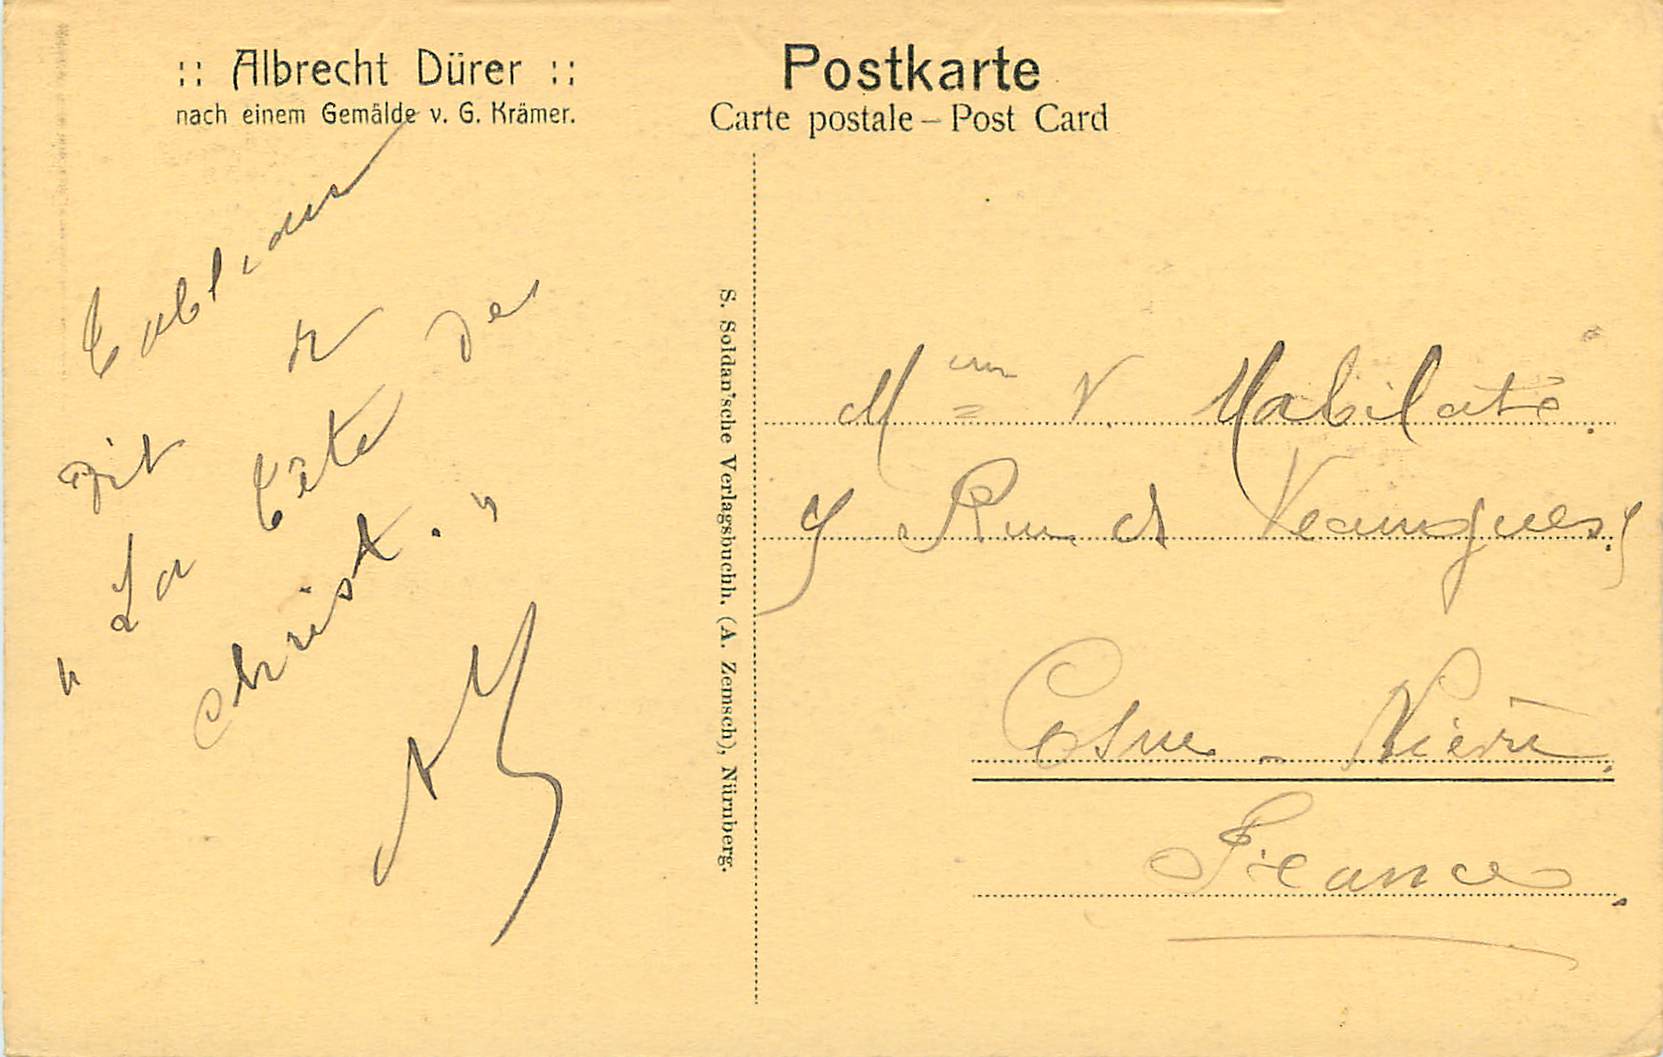 :: Albrecht Dürer ::
nach einem Gemälde v. G. Krämer.
Postkarte
Carte postale – Post Card
dit
"La Tête de
christ."
S. Soldan'sche Verlagsbuchh. (A. Zemsch), Nürnberg.
Mme V. Mabilat
Rue de
Cosne - Nièvre
France